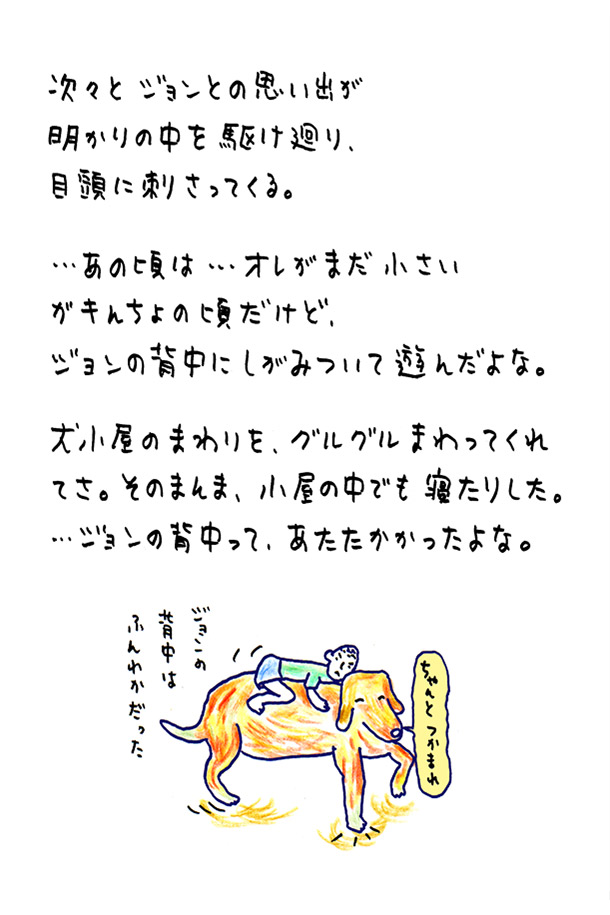 次々と ジョンとの思い出が
明かりの中を駆け廻り、
目頭に刺さってくる。
…あの頃は…オレがまだ小さい
がキんちょの頃だけど、
ジョンの背中にしがみついて遊んだよな。
犬小屋のまわりを、グルグルまわってくれ
てさ。そのまんま、小屋の中でも寝たりした。
…ジョンの背中って、あたたかかったよな。
ジョンの
背中は
ふんわかだった
ちゃんと つかまれ